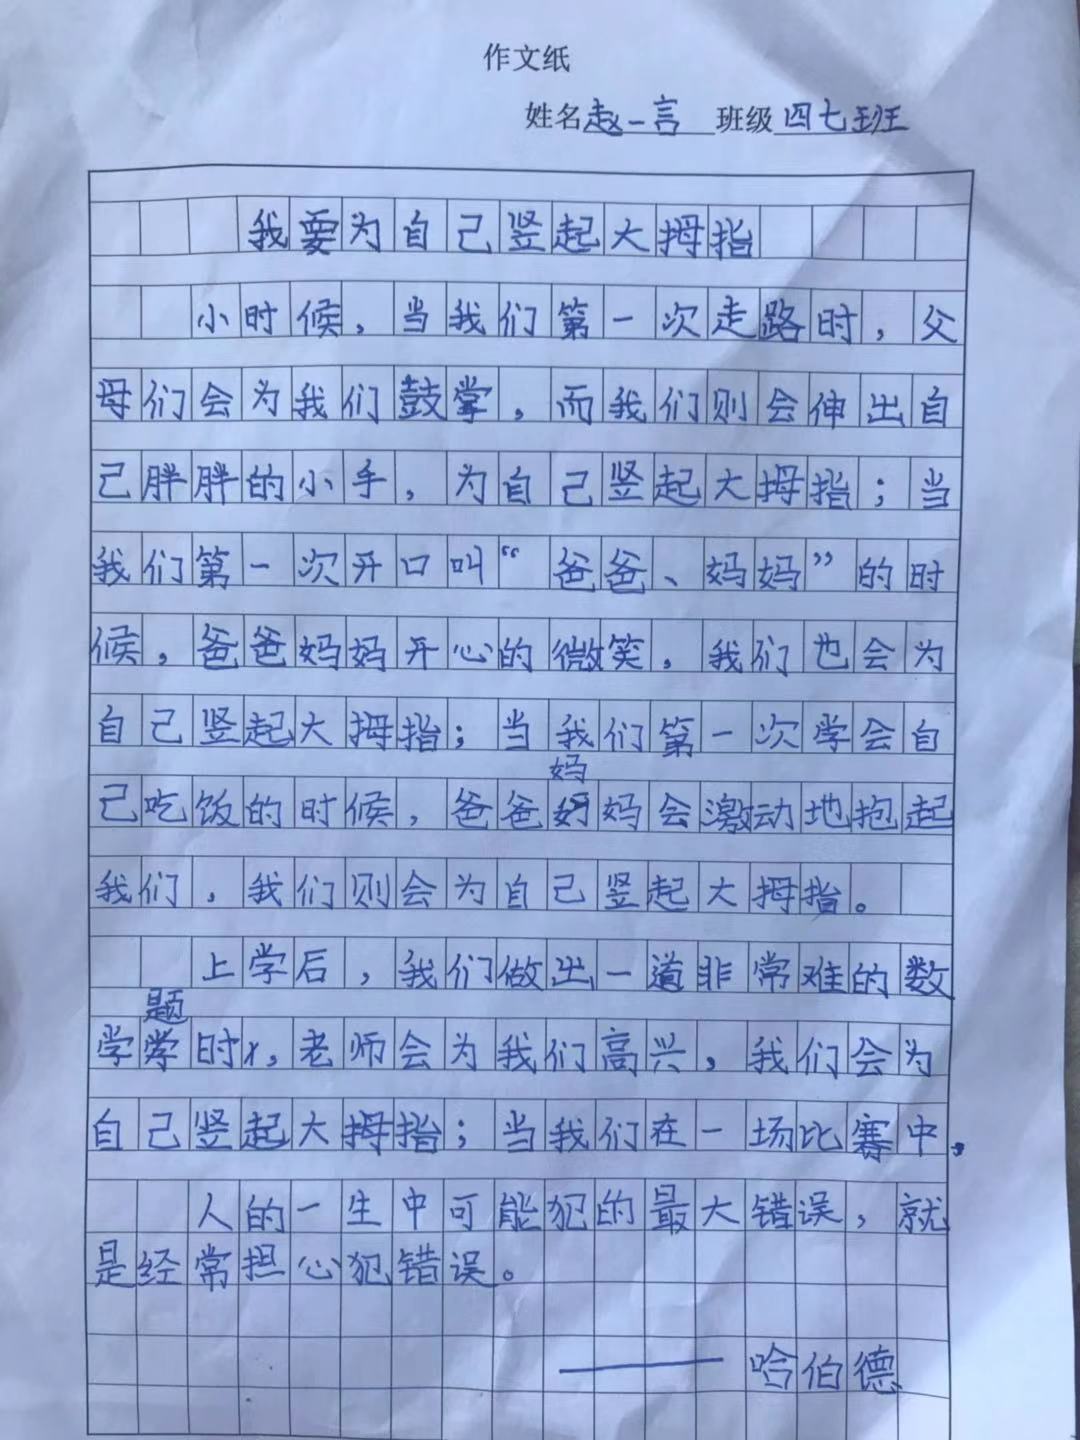 作文纸
姓名赵一言 班级四七班
我要为自己竖起大拇指
小时候，当我们第一次走路时，父
母们会为我们鼓掌，而我们则会伸出自
己胖胖的小手，为自己竖起大拇指；当
我们第一次开口叫“爸爸、妈妈”的时
候，爸爸妈妈开心的微笑，我们也会为
自己竖起大拇指；当我们第一次学会自
己吃饭的时候，爸爸妈妈会激动地抱起
我们，我们则会为自己竖起大拇指。
上学后，我们做出一道非常难的数
学题时，老师会为我们高兴，我们会为
自己竖起大拇指；当我们在一场比赛中，
人的一生中可能犯的最大错误，就
是经常担心犯错误。
——哈伯德